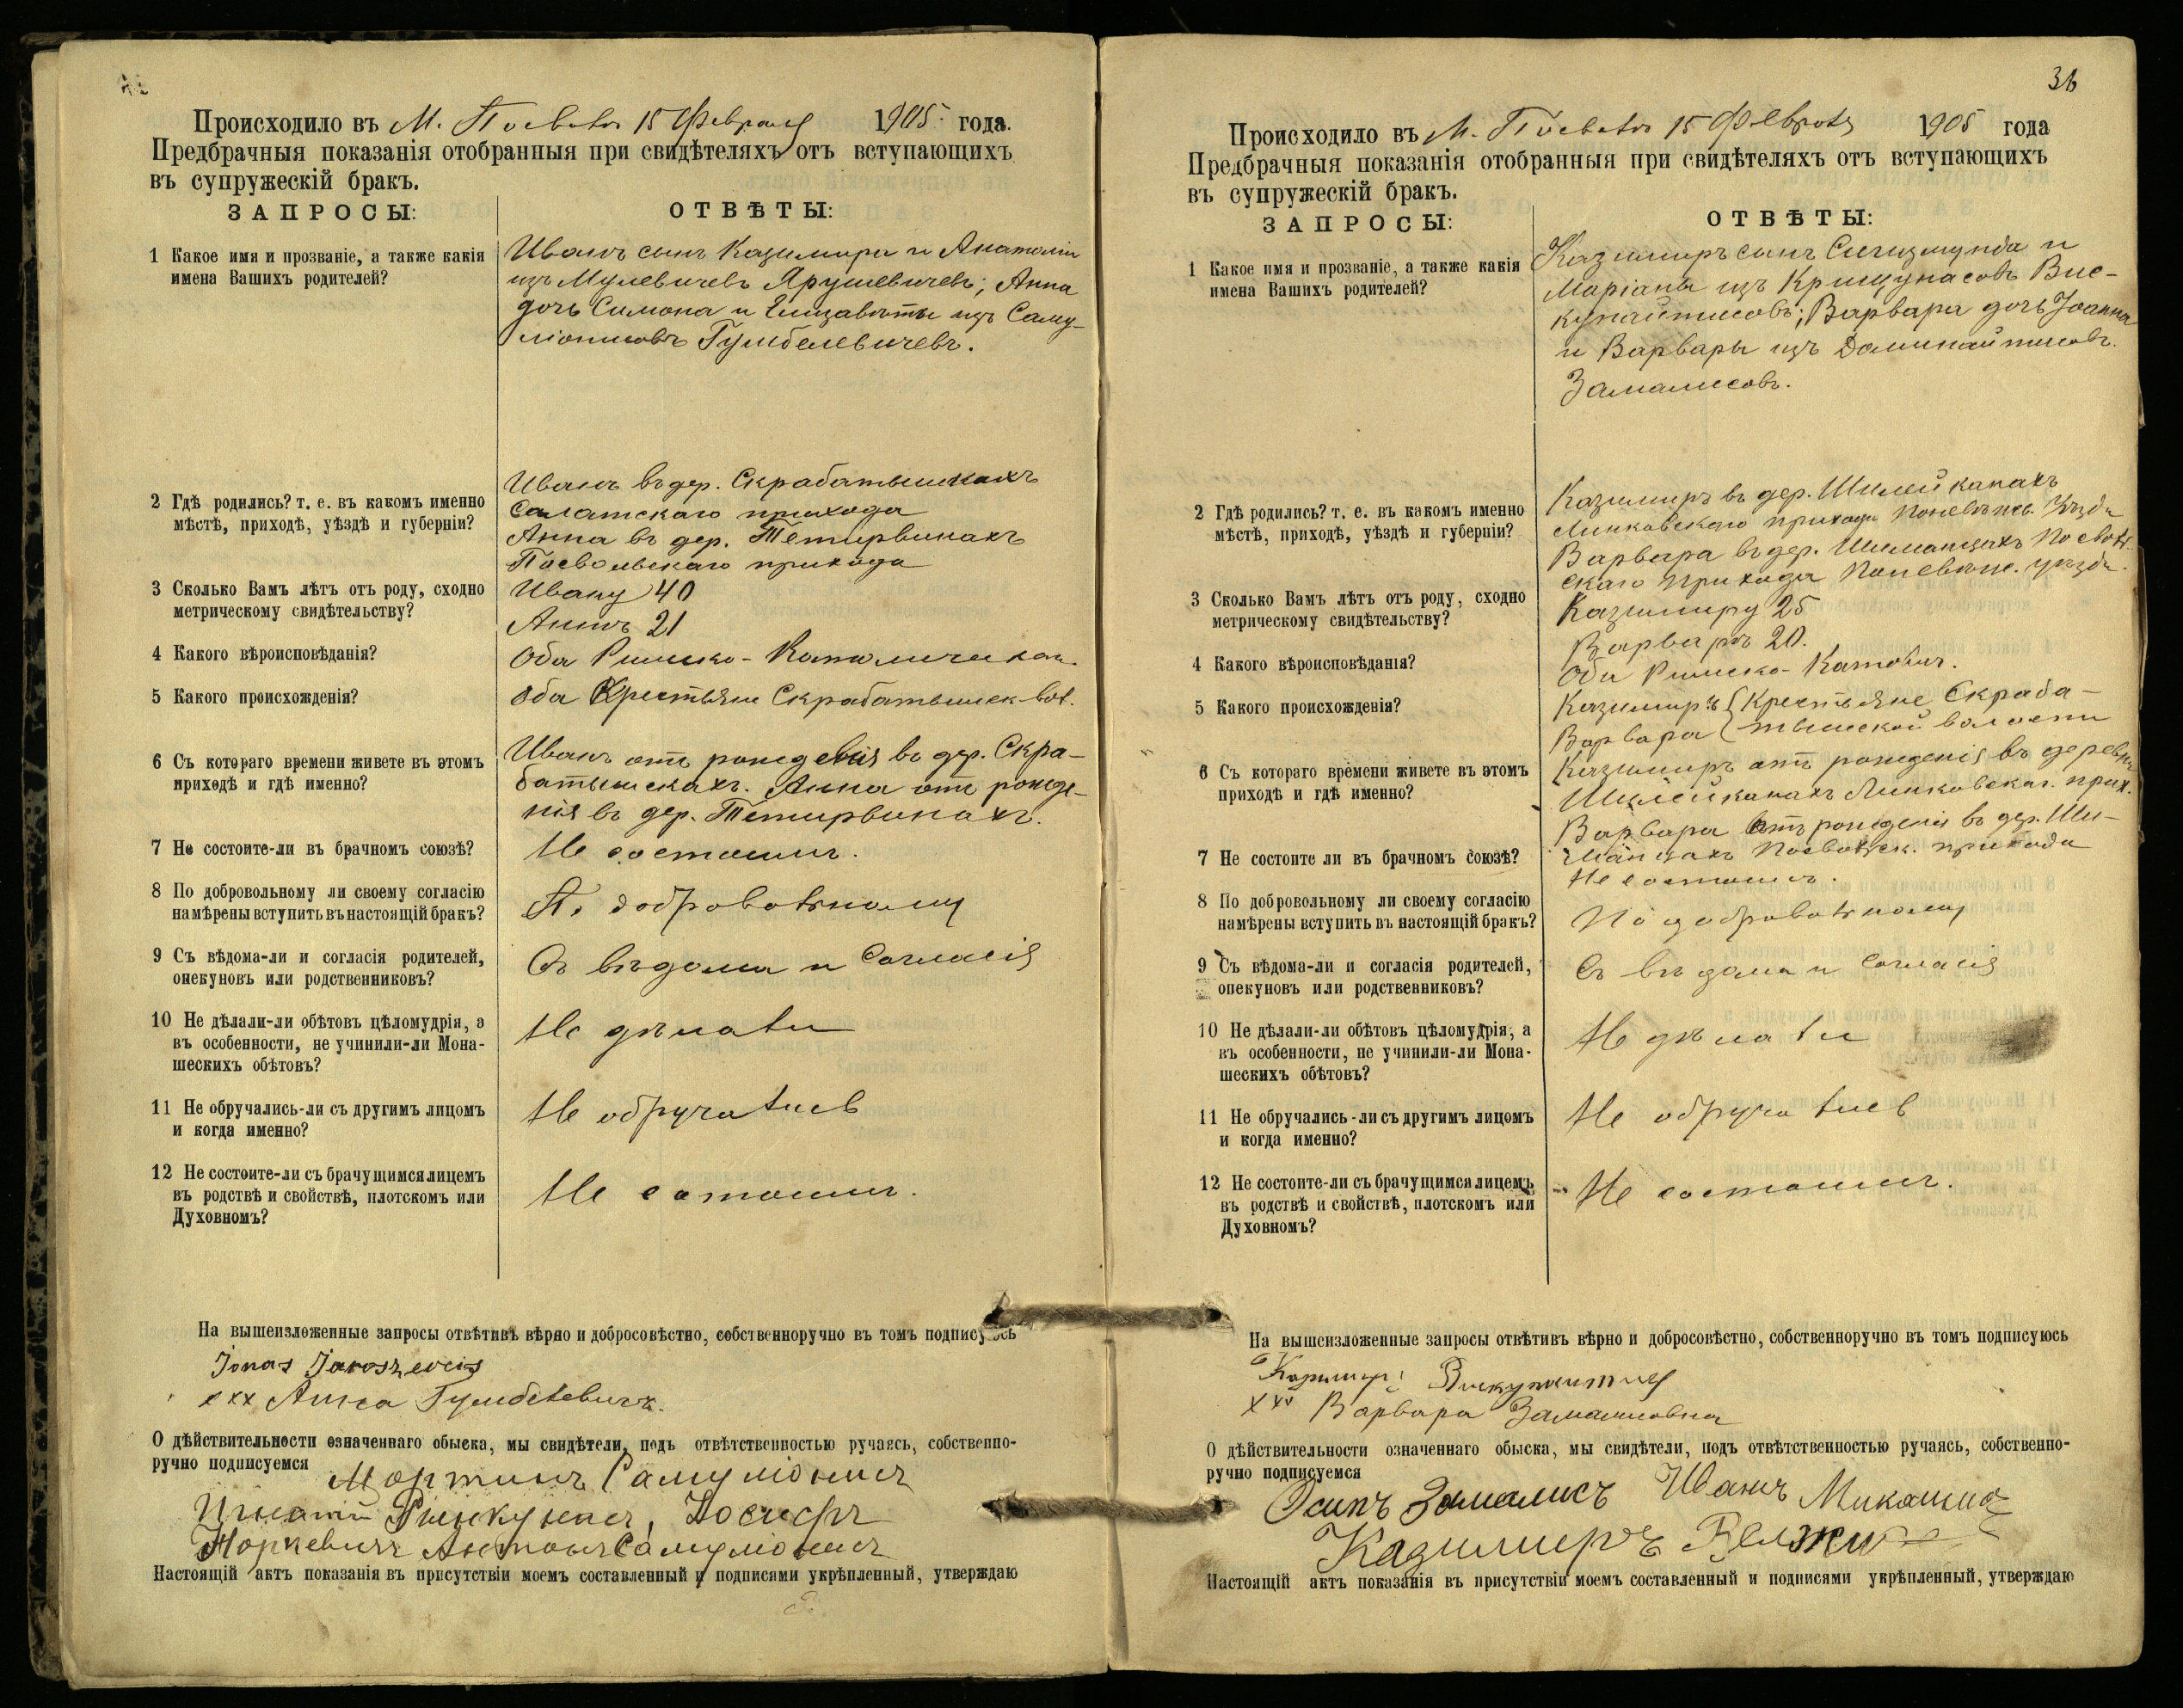 Происходило въ М. Посволь 15 Февраля 1905 года.
Предбрачныя показанія отобранныя при свидѣтеляхъ отъ вступающихъ
въ супружескій бракъ.
ЗАПРОСЫ:
ОТВѢТЫ:
1 Какое имя и прозваніе, а также какія
имена Вашихъ родителей?
Иванъ сынъ Казимира и Анатоліи
изъ Мулевичевъ Ярушевичевъ; Анна
дочь Симона и Елизаветы изъ Саму-
ліонисовъ Гумбелевичевъ.
2 Гдѣ родились? т. е. въ какомъ именно
мѣстѣ, приходѣ, уѣздѣ и губерніи?
Иванъ въ дер. Скрабатышкахъ
Салатскаго прихода
Анна въ дер. Тетирвинахъ
Посвольскаго прихода
3 Сколько Вамъ лѣтъ отъ роду, сходно
метрическому свидѣтельству?
Ивану 40
Аннѣ 21
4 Какого вѣроисповѣданія?
Оба Римско-Католическаг.
5 Какого происхожденія?
Оба Крестьяне Скрабатышек вол.
6 Съ котораго времени живете въ этомъ
приходѣ и гдѣ именно?
Иванъ отъ рожденія въ дер. Скра-
батышкахъ. Анна отъ рожде-
нія въ дер. Тетирвинахъ.
7 Не состоите-ли въ брачномъ союзѣ?
Не состоимъ.
8 По добровольному ли своему согласію
намѣрены вступить въ настоящій бракъ?
По добровольному
9 Съ вѣдома-ли и согласія родителей,
опекуновъ или родственниковъ?
Съ вѣдома и согласія
10 Не дѣлали-ли обѣтовъ цѣломудрія, а
въ особенности, не учинили-ли Мона-
шескихъ обѣтовъ?
Не дѣлали
11 Не обручались-ли съ другимъ лицомъ
и когда именно?
Не обручались
12 Не состоите-ли съ брачущимся лицемъ
въ родствѣ и свойствѣ, плотскомъ или
Духовномъ?
Не состоимъ.
На вышеизложенные запросы отвѣтивъ вѣрно и добросовѣстно, собственноручно въ томъ подписуюсь
Jonas Jaroszevcis
xxx Анна Гумбелевичъ.
О дѣйствительности означеннаго обыска, мы свидѣтели, подъ отвѣтственностью ручаясь, собственно-
ручно подписуемся Мортинъ Самуліонисъ
Игнатій Рынкунасъ, Иосифъ
Норкевичъ Антонъ Самуліонисъ
Настоящій актъ показанія въ присутствіи моемъ составленный и подписями укрѣпленный, утверждаю
36
Происходило въ М. Посволь 15 Февраля 1905 года
Предбрачныя показанія отобранныя при свидѣтеляхъ отъ вступающихъ
въ супружескій бракъ.
ЗАПРОСЫ:
ОТВѢТЫ:
1 Какое имя и прозваніе, а также какія
имена Вашихъ родителей?
Казимиръ сынъ Сигизмунда и
Маріаны изъ Крищунасовъ Вис-
купайтисовъ; Варвара дочь Іоанна
и Варвары изъ Доминайтисовъ
Замалисовъ.
2 Гдѣ родились? т. е. въ какомъ именно
мѣстѣ, приходѣ, уѣздѣ и губерніи?
Казимиръ въ дер. Шилейканахъ
Линковскаго прихода Поневѣж. Уѣзда
Варвара въ дер. Шиманцахъ Посволь-
скаго прихода Поневѣж. уѣзда.
3 Сколько Вамъ лѣтъ отъ роду, сходно
метрическому свидѣтельству?
Казимиру 25
Варварѣ 20.
4 Какого вѣроисповѣданія?
Оба Римско-Католич.
5 Какого происхожденія?
Казимиръ Крестьяне Скраба-
Варвара тышской волости
6 Съ котораго времени живете въ этомъ
приходѣ и гдѣ именно?
Казимиръ отъ рожденія въ деревни
Шилейканахъ Линковскаг. прих.
Варвара отъ рожденія въ дер. Ши-
манцахъ Посвольск. прихода
7 Не состоите ли въ брачномъ союзѣ?
Не состоимъ.
8 По добровольному ли своему согласію
намѣрены вступить въ настоящій бракъ?
По добровольному
9 Съ вѣдома-ли и согласія родителей,
опекуновъ или родственниковъ?
Съ вѣдома и согласія
10 Не дѣлали-ли обѣтовъ цѣломудрія, а
въ особенности, не учинили-ли Мона-
шескихъ обѣтовъ?
Не дѣлали
11 Не обручались-ли съ другимъ лицомъ
и когда именно?
Не обручались
12 Не состоите-ли съ брачущимся лицемъ
въ родствѣ и свойствѣ, плотскомъ или
Духовномъ?
Не состоимъ.
На вышеизложенные запросы отвѣтивъ вѣрно и добросовѣстно, собственноручно въ томъ подписуюсь
Казимиръ
xxx Варвара Замалисовна
О дѣйствительности означеннаго обыска, мы свидѣтели, подъ отвѣтственностью ручаясь, собственно-
ручно подписуемся
Осипъ Замалисъ Иванъ
Казимиръ
Настоящій актъ показанія въ присутствіи моемъ составленный и подписями укрѣпленный, утверждаю